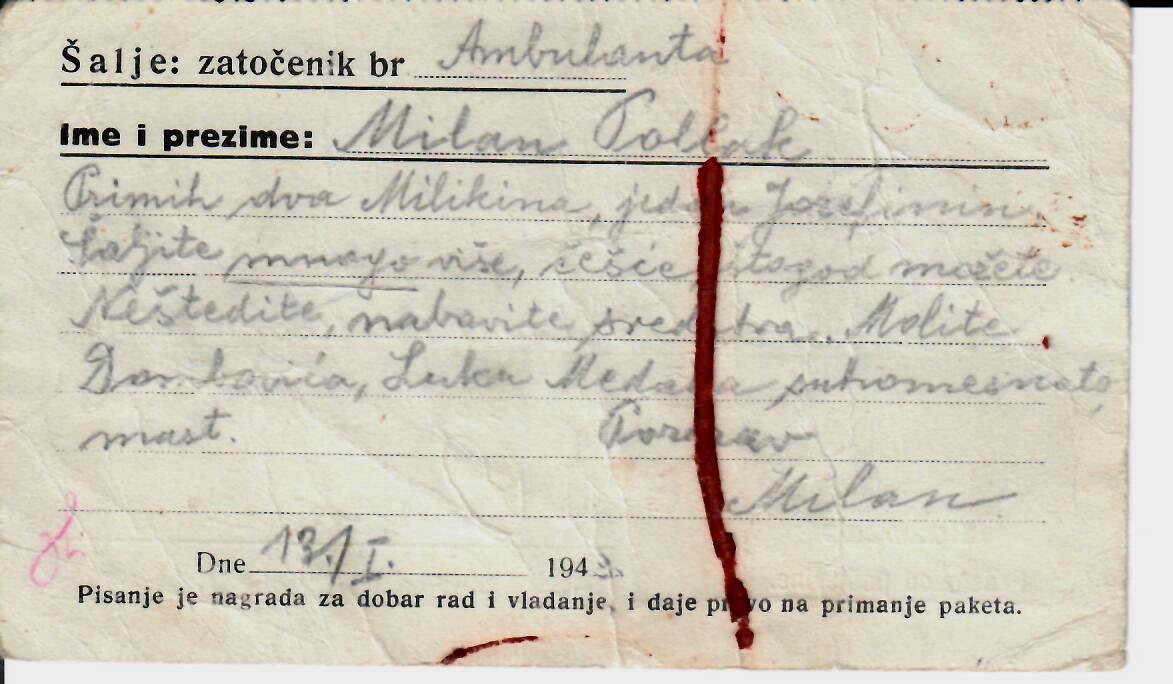 Šalje: zatočenik br Ambulanta
Ime i prezime: Milan Pollak
Primih dva Milikina, jedan Jozefinin.
Šaljite mnogo više, češće, štogod možete.
Neštedite, nabavite sredstva. Molite
Luku suhomesnato,
mast. Pozdrav
Milan
Dne 13./I. 194
Pisanje je nagrada za dobar rad i vladanje, i daje pravo na primanje paketa.